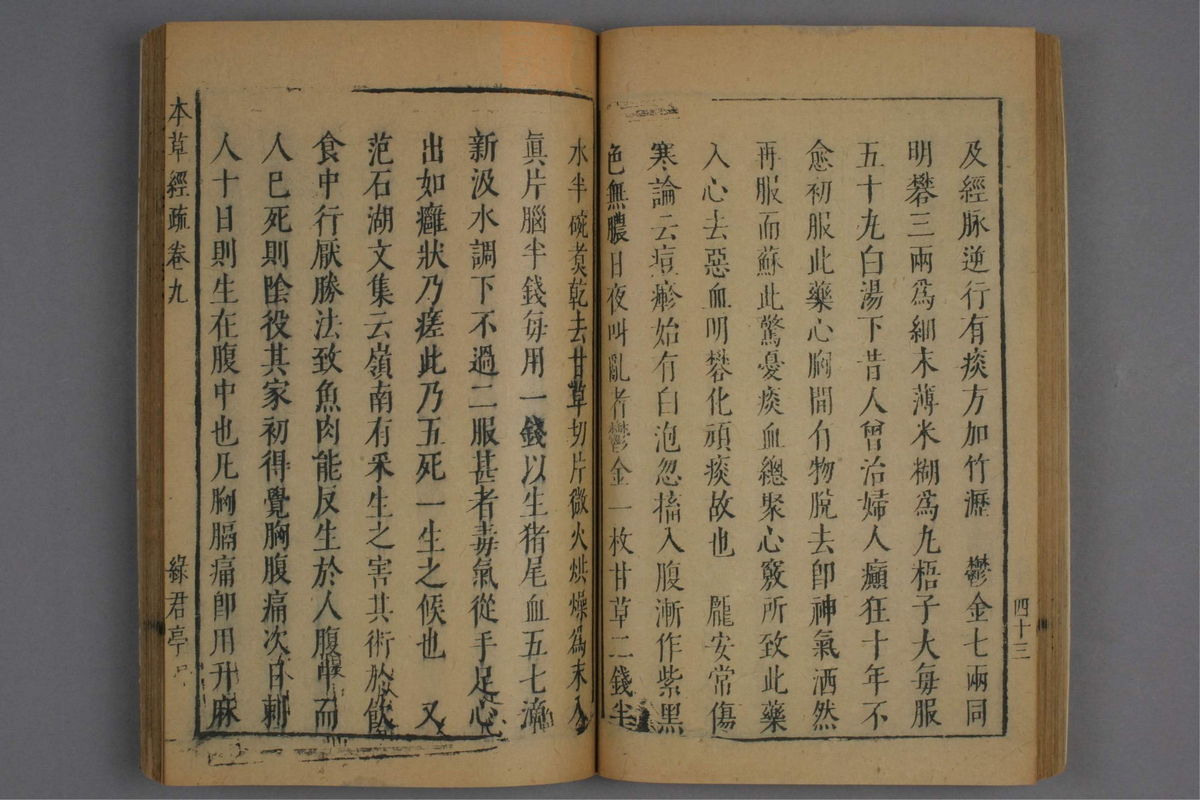 及經脉逆行有痰方加竹瀝　鬱金七兩同
明礬三兩爲細末薄米糊爲丸梧子大每服
五十丸白湯下昔人曾治婦人癲狂十年不
愈初服此藥心胸間有物脫去卽神氣洒然
再服而蘇此驚憂痰血總聚心竅所致此藥
入心去惡血明礬化頑痰故也　龐安常傷
寒論云痘瘮始有白泡忽搐入腹漸作紫黑
色無膿日夜叫亂者鬱金一枚甘草二錢半
四十三
水半碗煑乾去甘草切片微火烘燥爲末入
眞片腦半錢每用一錢以生猪尾血五七滴
新汲水調下不過二服甚者毒氣從手足心
出如癰狀乃瘥此乃五死一生之候也　又
范石湖文集云嶺南有采生之害其術於飲
食中行厭勝法致魚肉能反生於人腹中而
人已死則陰役其家初得覺胸腹痛次日刺
人十日則生在腹中也凡胸膈痛卽用升麻
本草經疏卷九
綠君亭